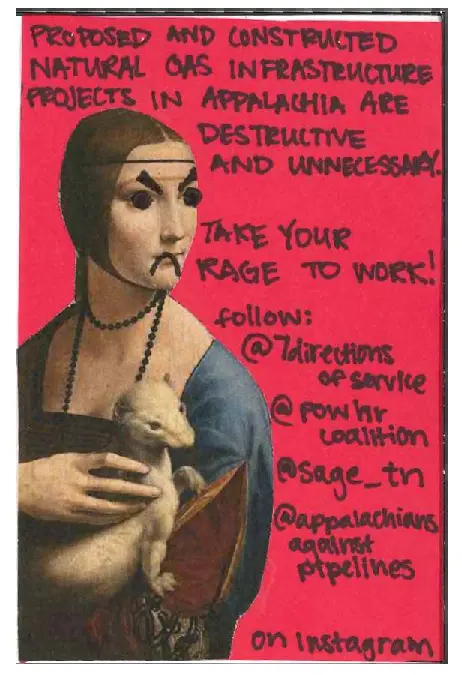 PROPOSED AND CONSTRUCTED
NATURAL GAS INFRASTRUCTURE
PROJECTS IN APPALACHIA ARE
DESTRUCTIVE
AND UNNECESSARY.
TAKE YOUR
RAGE TO WORK!
follow:
@7directions
of service
@powhr
coalition
@sage_tn
@appalachians
against
pipelines
on instagram